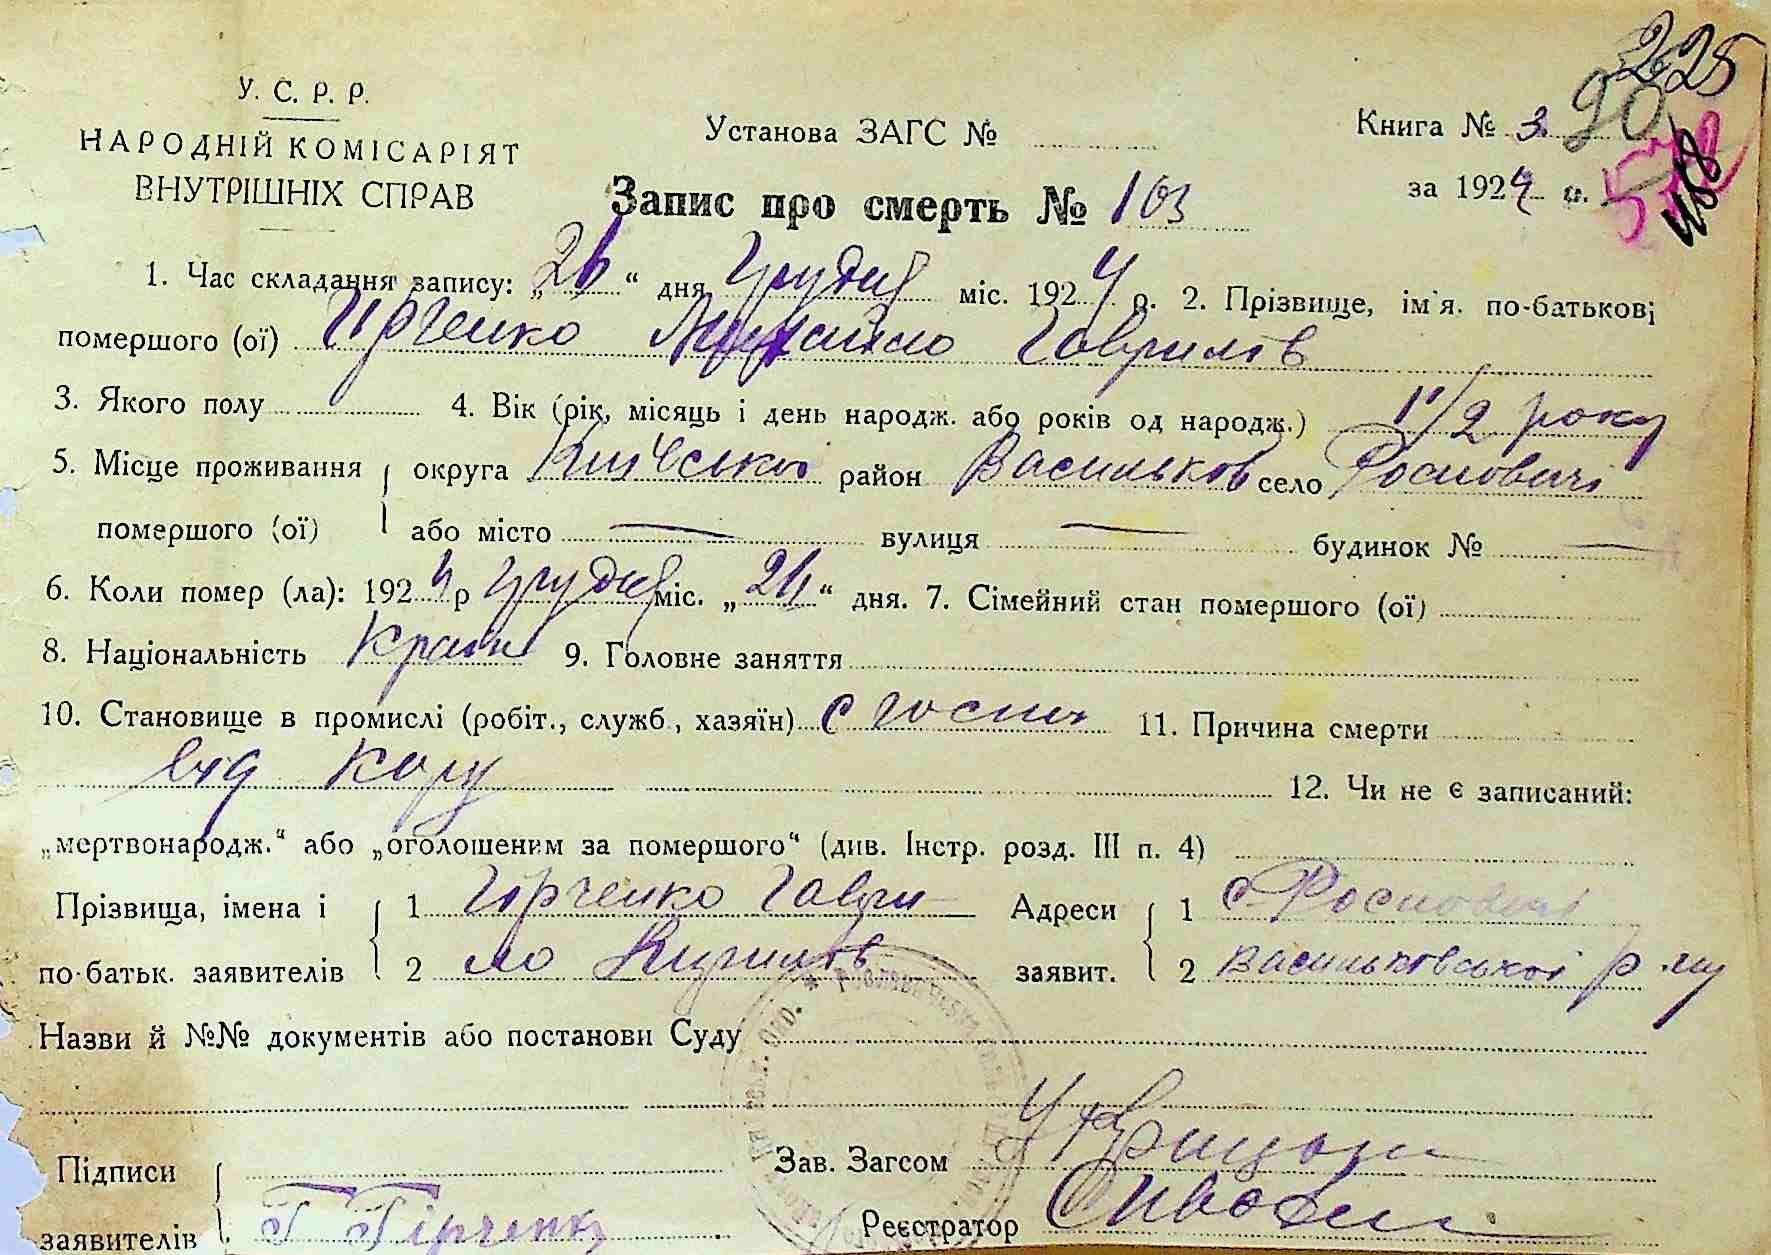 225
90
У. С. Р. Р.
НАРОДНІЙ КОМІСАРІЯТ
ВНУТРІШНІХ СПРАВ
Установа ЗАГС №
Книга № 3
за 1924 р.
488
Запис про смерть № 103
1. Час складання запису: „26“ дня Грудня міс. 1924 р. 2. Прізвище, ім'я, по-батькові
помершого (ої) Гірченко Михайло Гаврилов
3. Якого полу 4. Вік (рік, місяць і день народж. або років од народж.) 1 1/2 року
5. Місце проживання округа Київської район Васильков село Росповичі
помершого (ої) або місто — вулиця — будинок № —
6. Коли помер (ла): 1924 р Грудня міс. „26“ дня. 7. Сімейний стан помершого (ої)
8. Національність Країн 9. Головне заняття
10. Становище в промислі (робіт., служб., хазяїн) 11. Причина смерти
від кору
12. Чи не є записаний:
„мертвонародж.“ або „оголошеним за помершого“ (див. Інстр. розд. III п. 4)
Прізвища, імена і 1 Гірченко Гаври- Адреси 1 с. Росповичі
по-батьк. заявителів 2 ло Кирилов заявит. 2 Васильковської р-ну
Назви й №№ документів або постанови Суду
Підписи
Зав. Загсом
заявителів Г Гірченко Реєстратор